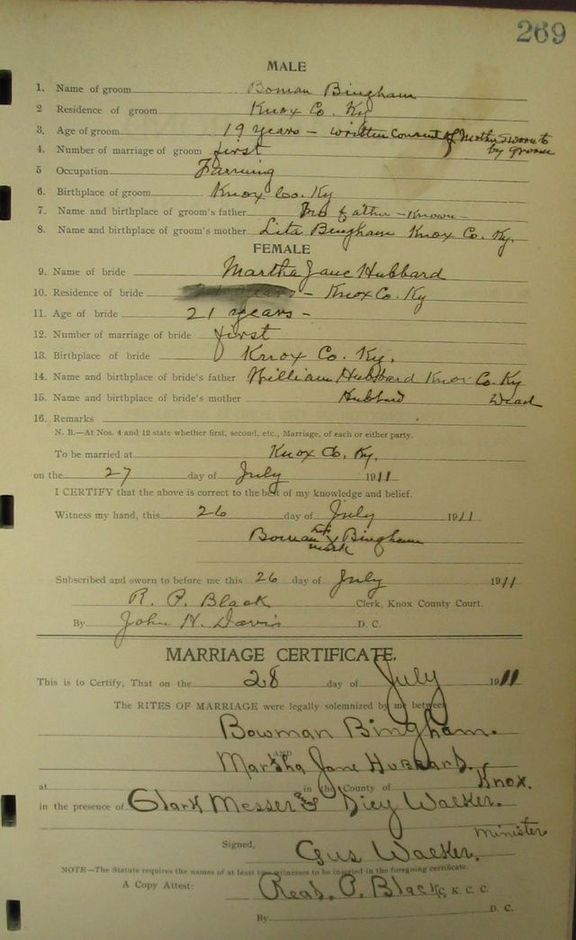 269
MALE
1. Name of groom Boman Bingham
2 Residence of groom Knox Co. Ky
3. Age of groom 19 years - written Consent of Mother sworn to by groom
4. Number of marriage of groom first
5 Occupation Farming
6. Birthplace of groom Knox Co. Ky
7. Name and birthplace of groom's father No father - Known -
8. Name and birthplace of groom's mother Lita Bingham Knox Co. Ky.
FEMALE
9. Name of bride Martha Jane Hubbard
10. Residence of bride - Knox Co. Ky
11. Age of bride 21 years -
12. Number of marriage of bride first
13. Birthplace of bride Knox Co. Ky.
14. Name and birthplace of bride's father William Hubbard Knox Co. Ky
15. Name and birthplace of bride's mother Hubbard Dead
16. Remarks
N. B.—At Nos. 4 and 12 state whether first, second, etc., Marriage, of each or either party.
To be married at Knox Co. Ky.
on the 27 day of July 1911
I CERTIFY that the above is correct to the best of my knowledge and belief.
Witness my hand, this 26 day of July 1911
Boman his X mark Bingham
Subscribed and sworn to before me this 26 day of July 1911
R. P. Black Clerk, Knox County Court.
By John H. Davis D. C.
MARRIAGE CERTIFICATE.
This is to Certify, That on the 28 day of July 1911
The RITES OF MARRIAGE were legally solemnized by me between
Bowman Bingham.
AND
Martha Jane Hubbard.
at in the County of Knox.
in the presence of Clark Messer & Dicy Walker.
minister
Signed, Gus Walker.
NOTE—The Statute requires the names of at least two witnesses to be inserted in the foregoing certificate.
A Copy Attest: P. Black C. K. C. C.
By D. C.